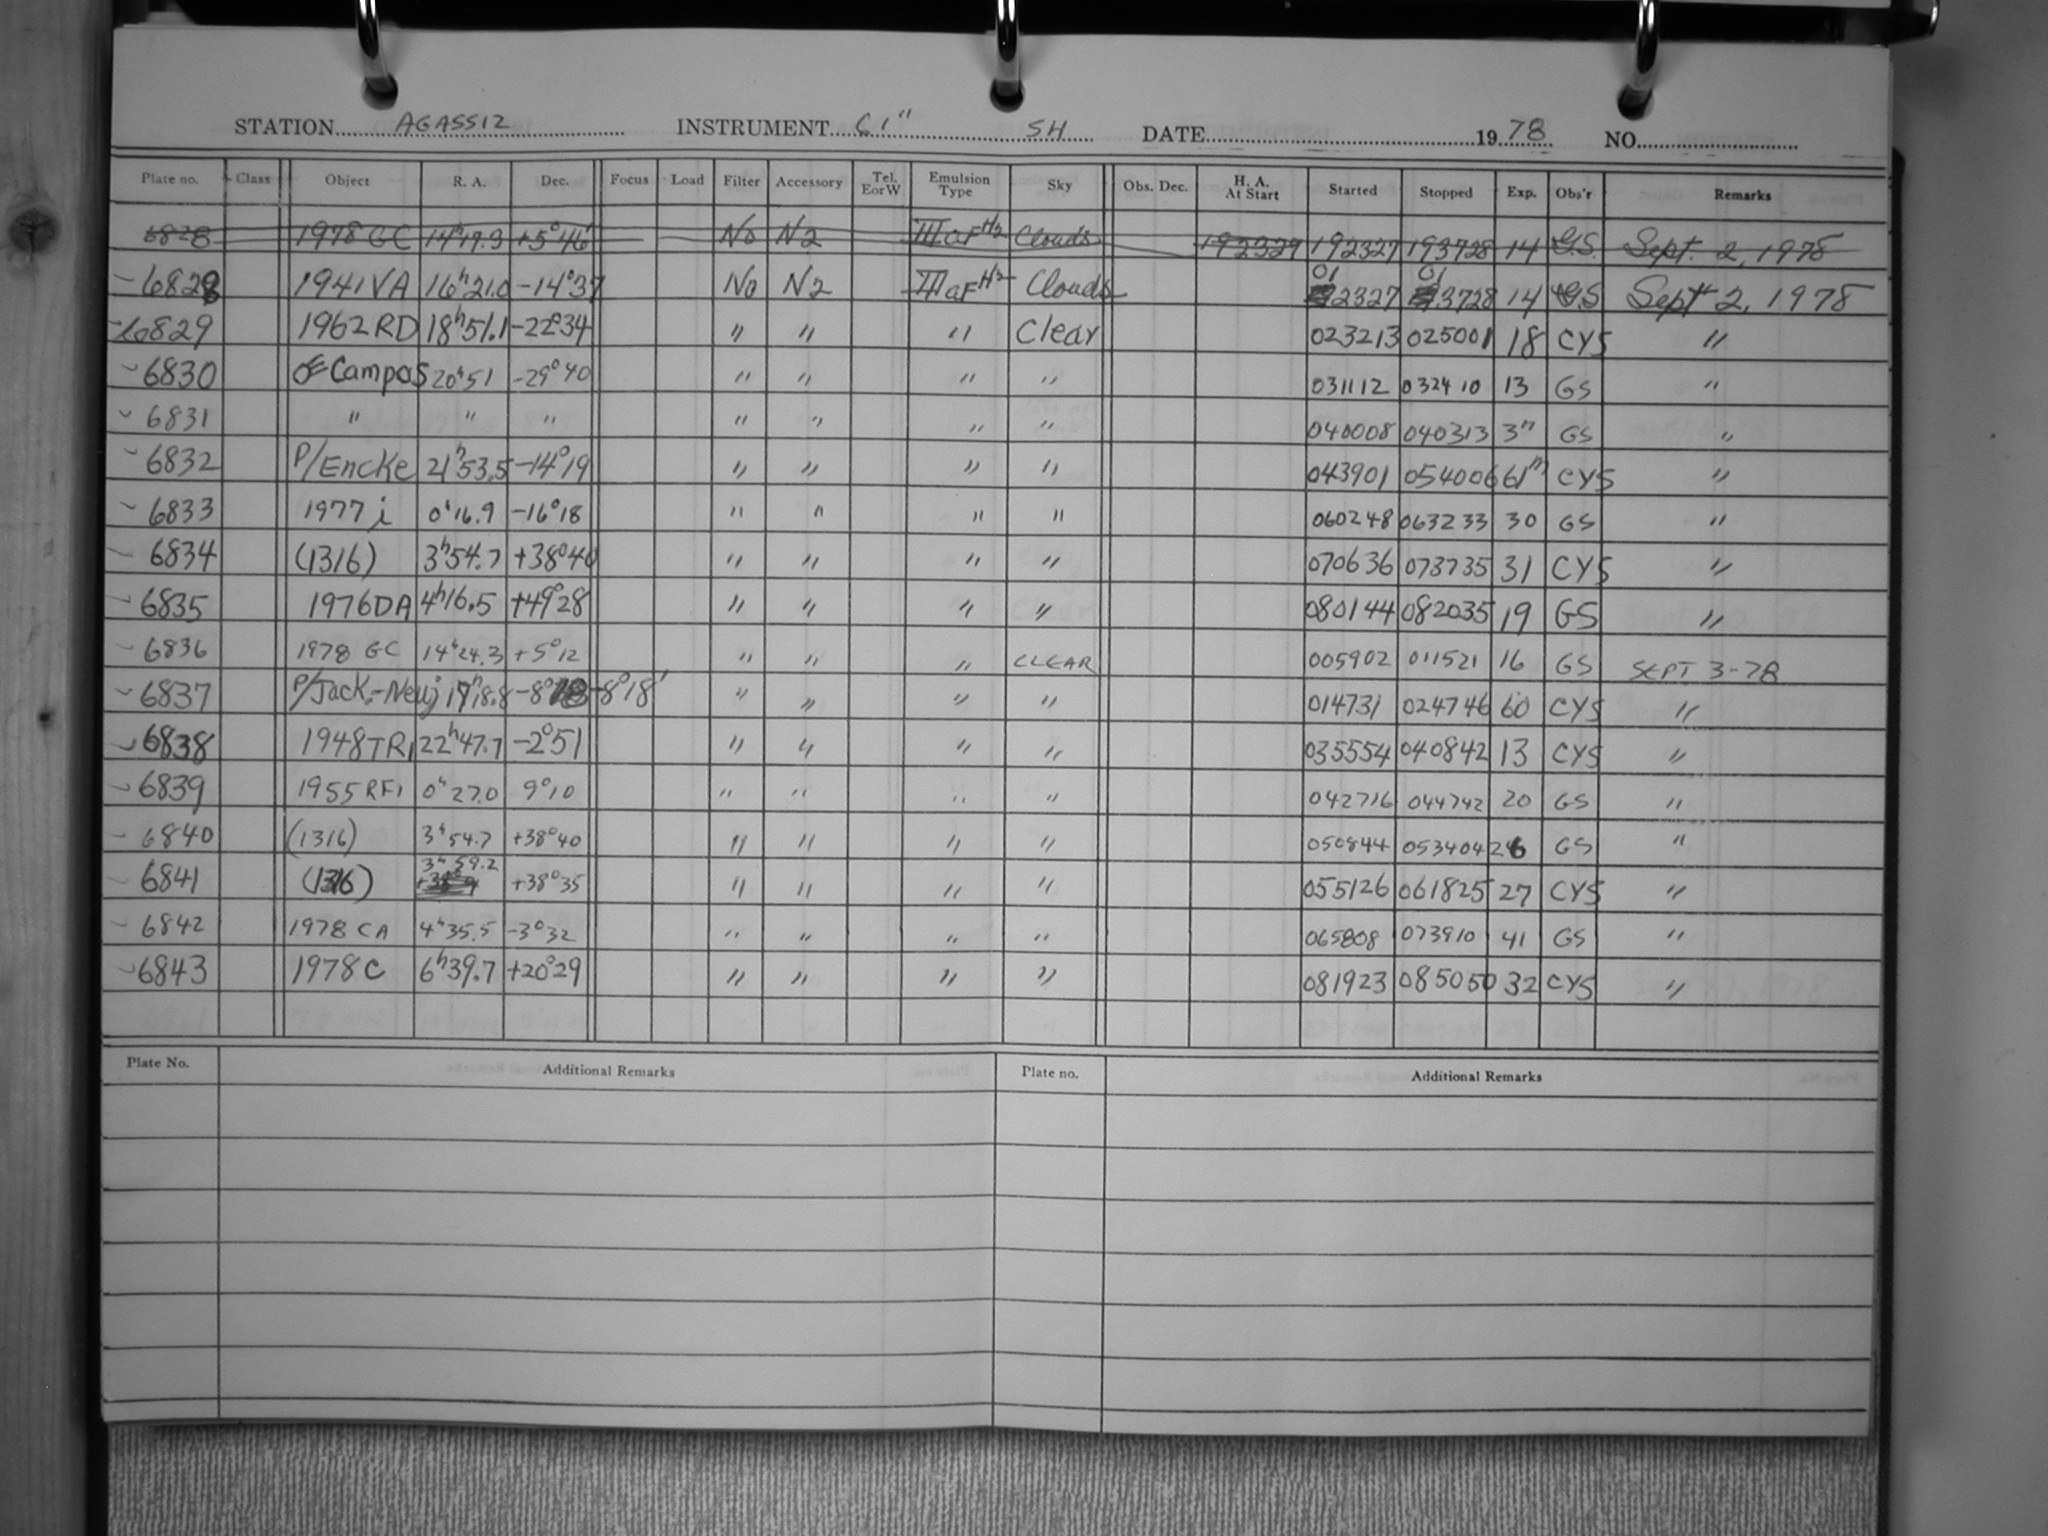 STATION AGASSIZ INSTRUMENT 61" SH DATE 1978 NO.
Plate no. Class Object R. A. Dec. Focus Load Filter Accessory Tel. E or W Emulsion Type Sky Obs. Dec. H. A. At Start Started Stopped Exp. Obs'r Remarks
6828 1978 GC 14h17.3 +5°46' No N2 IIIaF H2 Clouds 192327 192327 193728 14 G.S. Sept. 2, 1978
6828 1941VA 16h21.0 -14°37 No N2 IIIaF H2 Clouds 012327 013728 14 GS Sept 2, 1978
6829 1962RD 18h51.1 -22°34 " " " Clear 023213 025001 18 CYS "
6830 Campos 20h51 -29°40 " " " " 031112 032410 13 GS "
6831 " " " " " " " 040008 040313 3m GS "
6832 P/Encke 21h53.5 -14°19 " " " " 043901 054006 61m CYS "
6833 1977 i 0h16.9 -16°18 " " " " 060248 063233 30 GS "
6834 (1316) 3h54.7 +38°40 " " " " 070636 073735 31 CYS "
6835 1976DA 4h16.5 +49°28 " " " " 080144 082035 19 GS "
6836 1978 GC 14h24.3 +5°12 " " " CLEAR 005902 011521 16 GS SEPT 3-78
6837 P/Jack.-Neuj 17h18.8 -8°18 -8°18' " " " " 014731 024746 60 CYS "
6838 1948TR1 22h47.7 -2°51 " " " " 035554 040842 13 CYS "
6839 1955RF1 0h27.0 9°10 " " " " 042716 044742 20 GS "
6840 (1316) 3h54.7 +38°40 " " " " 050844 053404 26 GS "
6841 (1316) 3h59.2 +38°35 " " " " 055126 061825 27 CYS "
6842 1978 CA 4h35.5 -3°32 " " " " 065808 073910 41 GS "
6843 1978C 6h39.7 +20°29 " " " " 081923 085050 32 CYS "
Plate No. Additional Remarks Plate no. Additional Remarks